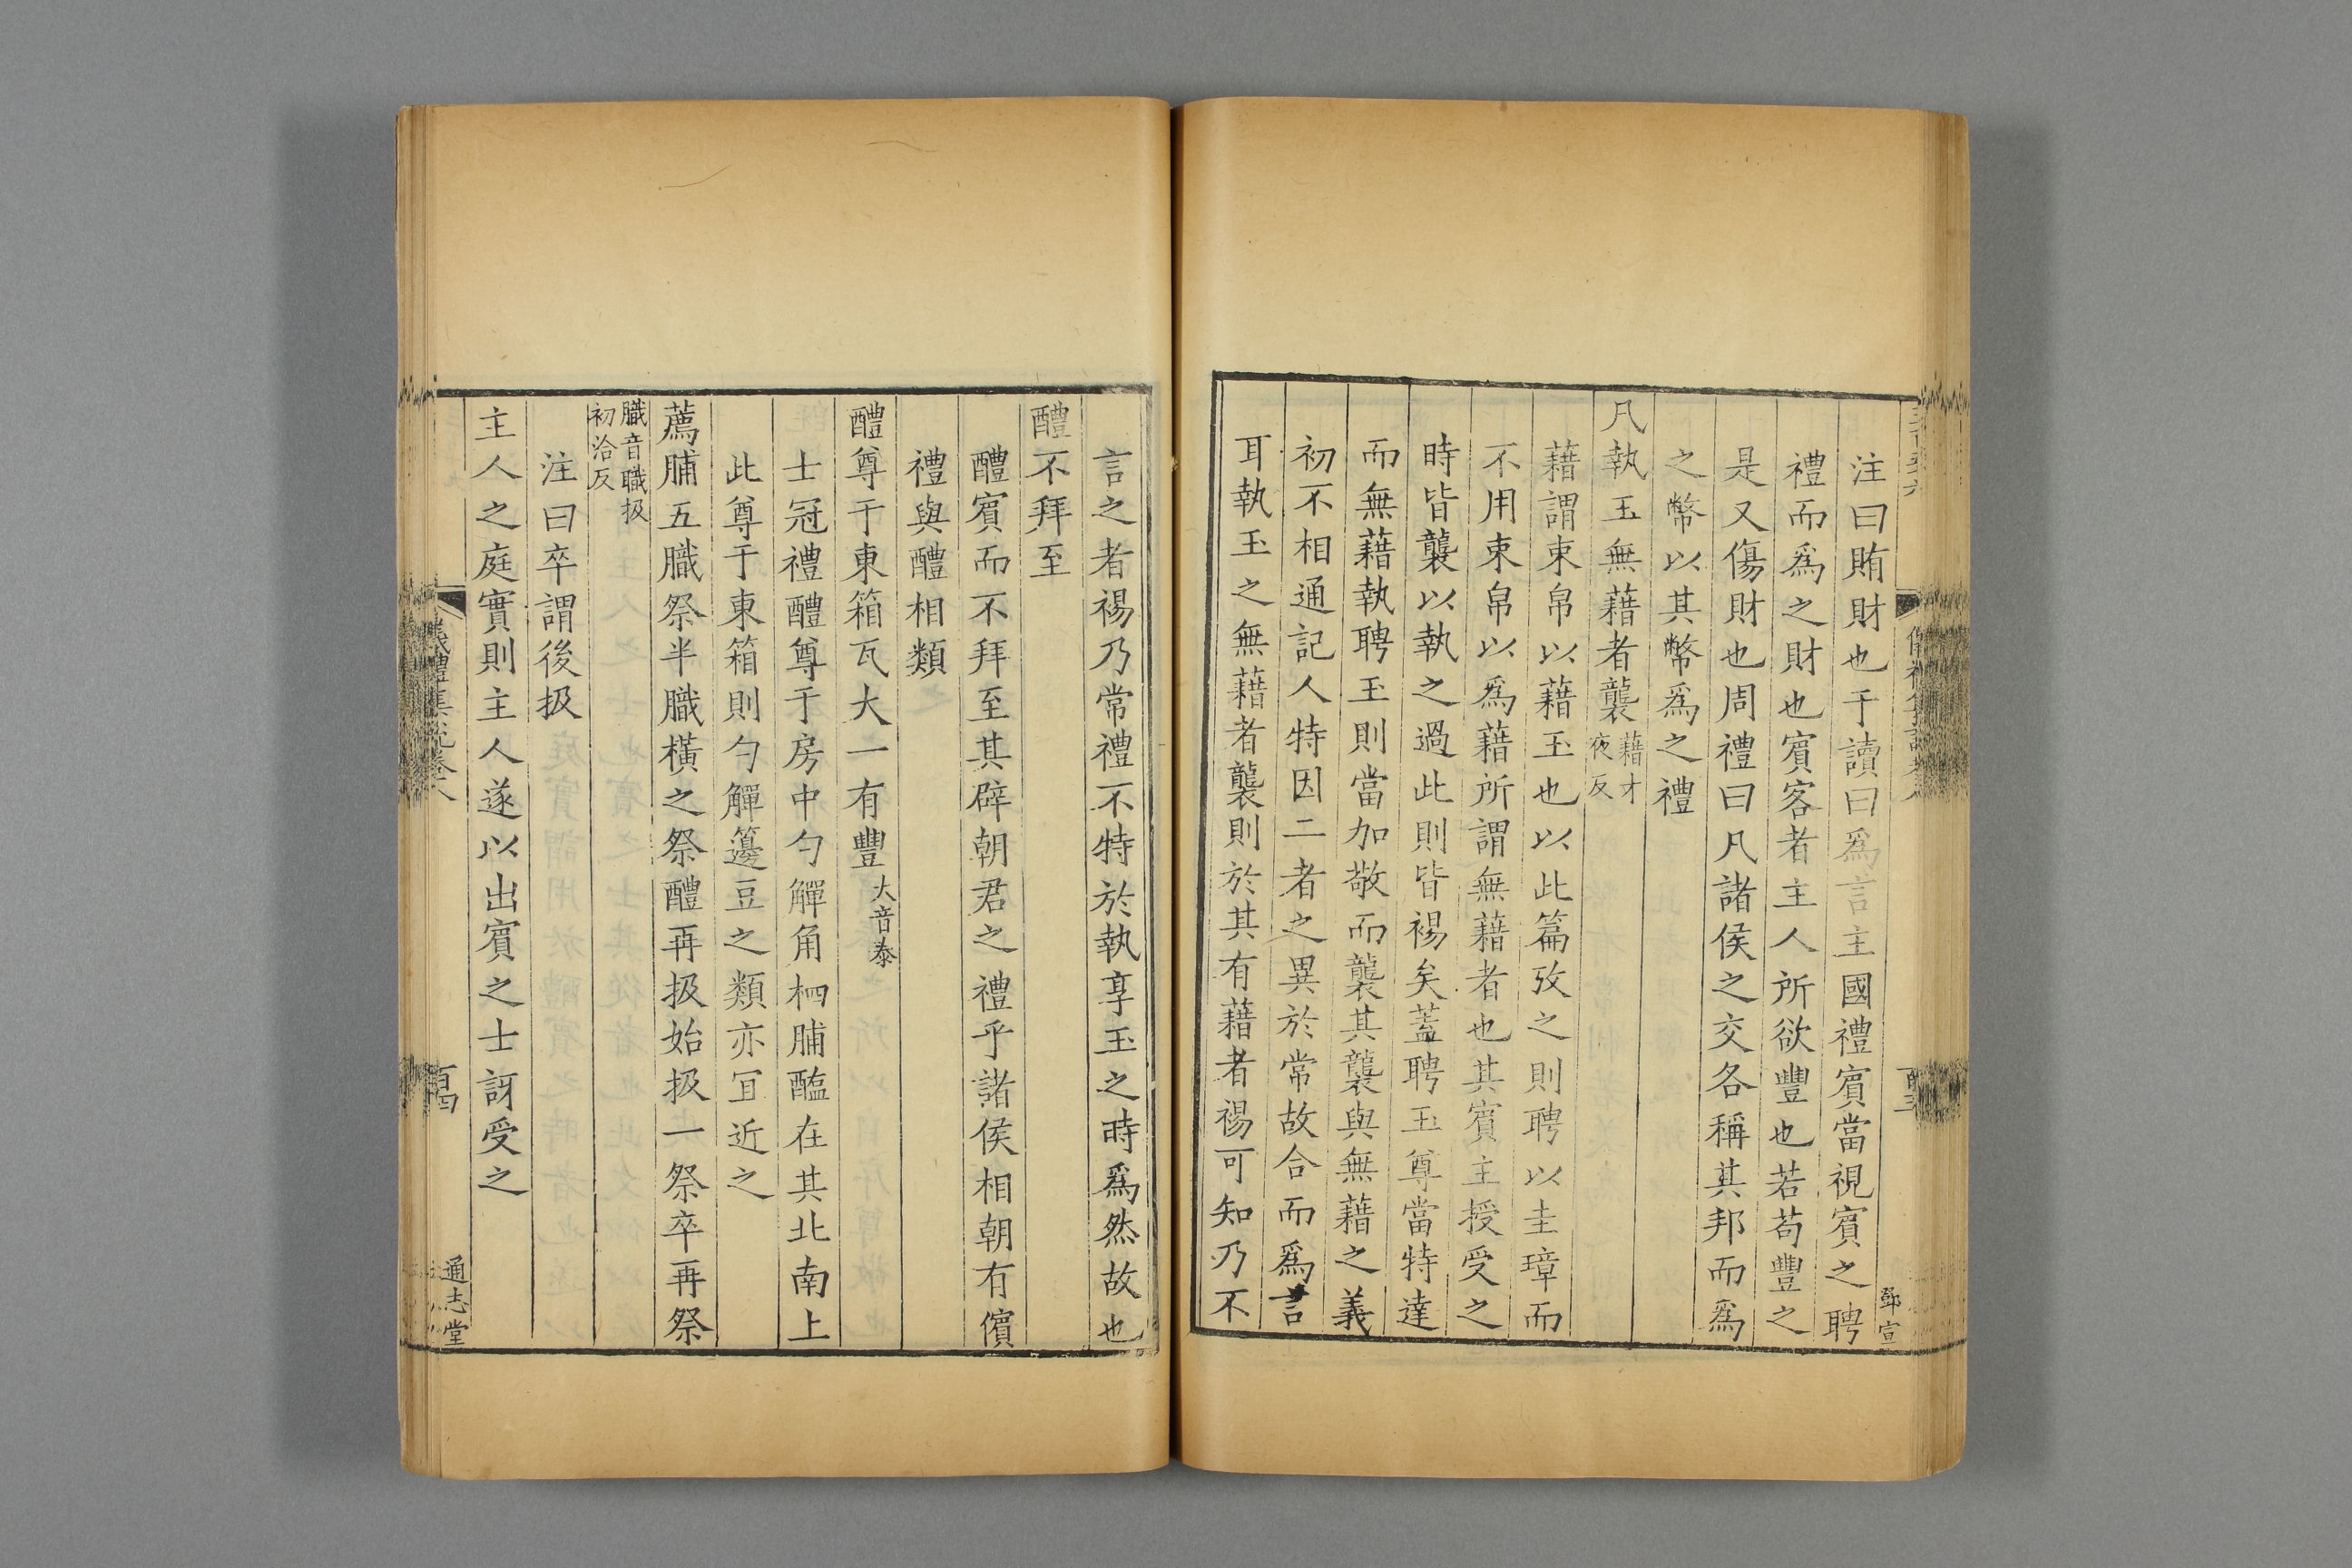 注曰賄財也于讀曰爲言主國禮賓當視賓之聘
禮而爲之財也賓客者主人所欲豐也若苟豐之
是又傷財也周禮曰凡諸侯之交各稱其邦而爲
之幣以其幣爲之禮
凡執玉無藉者襲藉才夜反
藉謂束帛以藉玉也以此篇攷之則聘以圭璋而
不用束帛以爲藉所謂無藉者也其賓主授受之
時皆襲以執之過此則皆裼矣蓋聘玉尊當特達
而無藉執聘玉則當加敬而襲其襲與無藉之義
初不相通記人特因二者之異於常故合而爲言
耳執玉之無藉者襲則於其有藉者裼可知乃不
鄧宣
言之者裼乃常禮不特於執享玉之時爲然故也
醴不拜至
醴賓而不拜至其辟朝君之禮乎諸侯相朝有儐
禮與醴相類
醴尊于東箱瓦大一有豐大音泰
士冠禮醴尊于房中勺觶角柶脯醢在其北南上
此尊于東箱則勺觶籩豆之類亦宜近之
薦脯五膱祭半膱橫之祭醴再扱始扱一祭卒再祭
膱音職扱
初洽反
注曰卒謂後扱
主人之庭實則主人遂以出賓之士訝受之
儀禮集說卷八
百四
通志堂